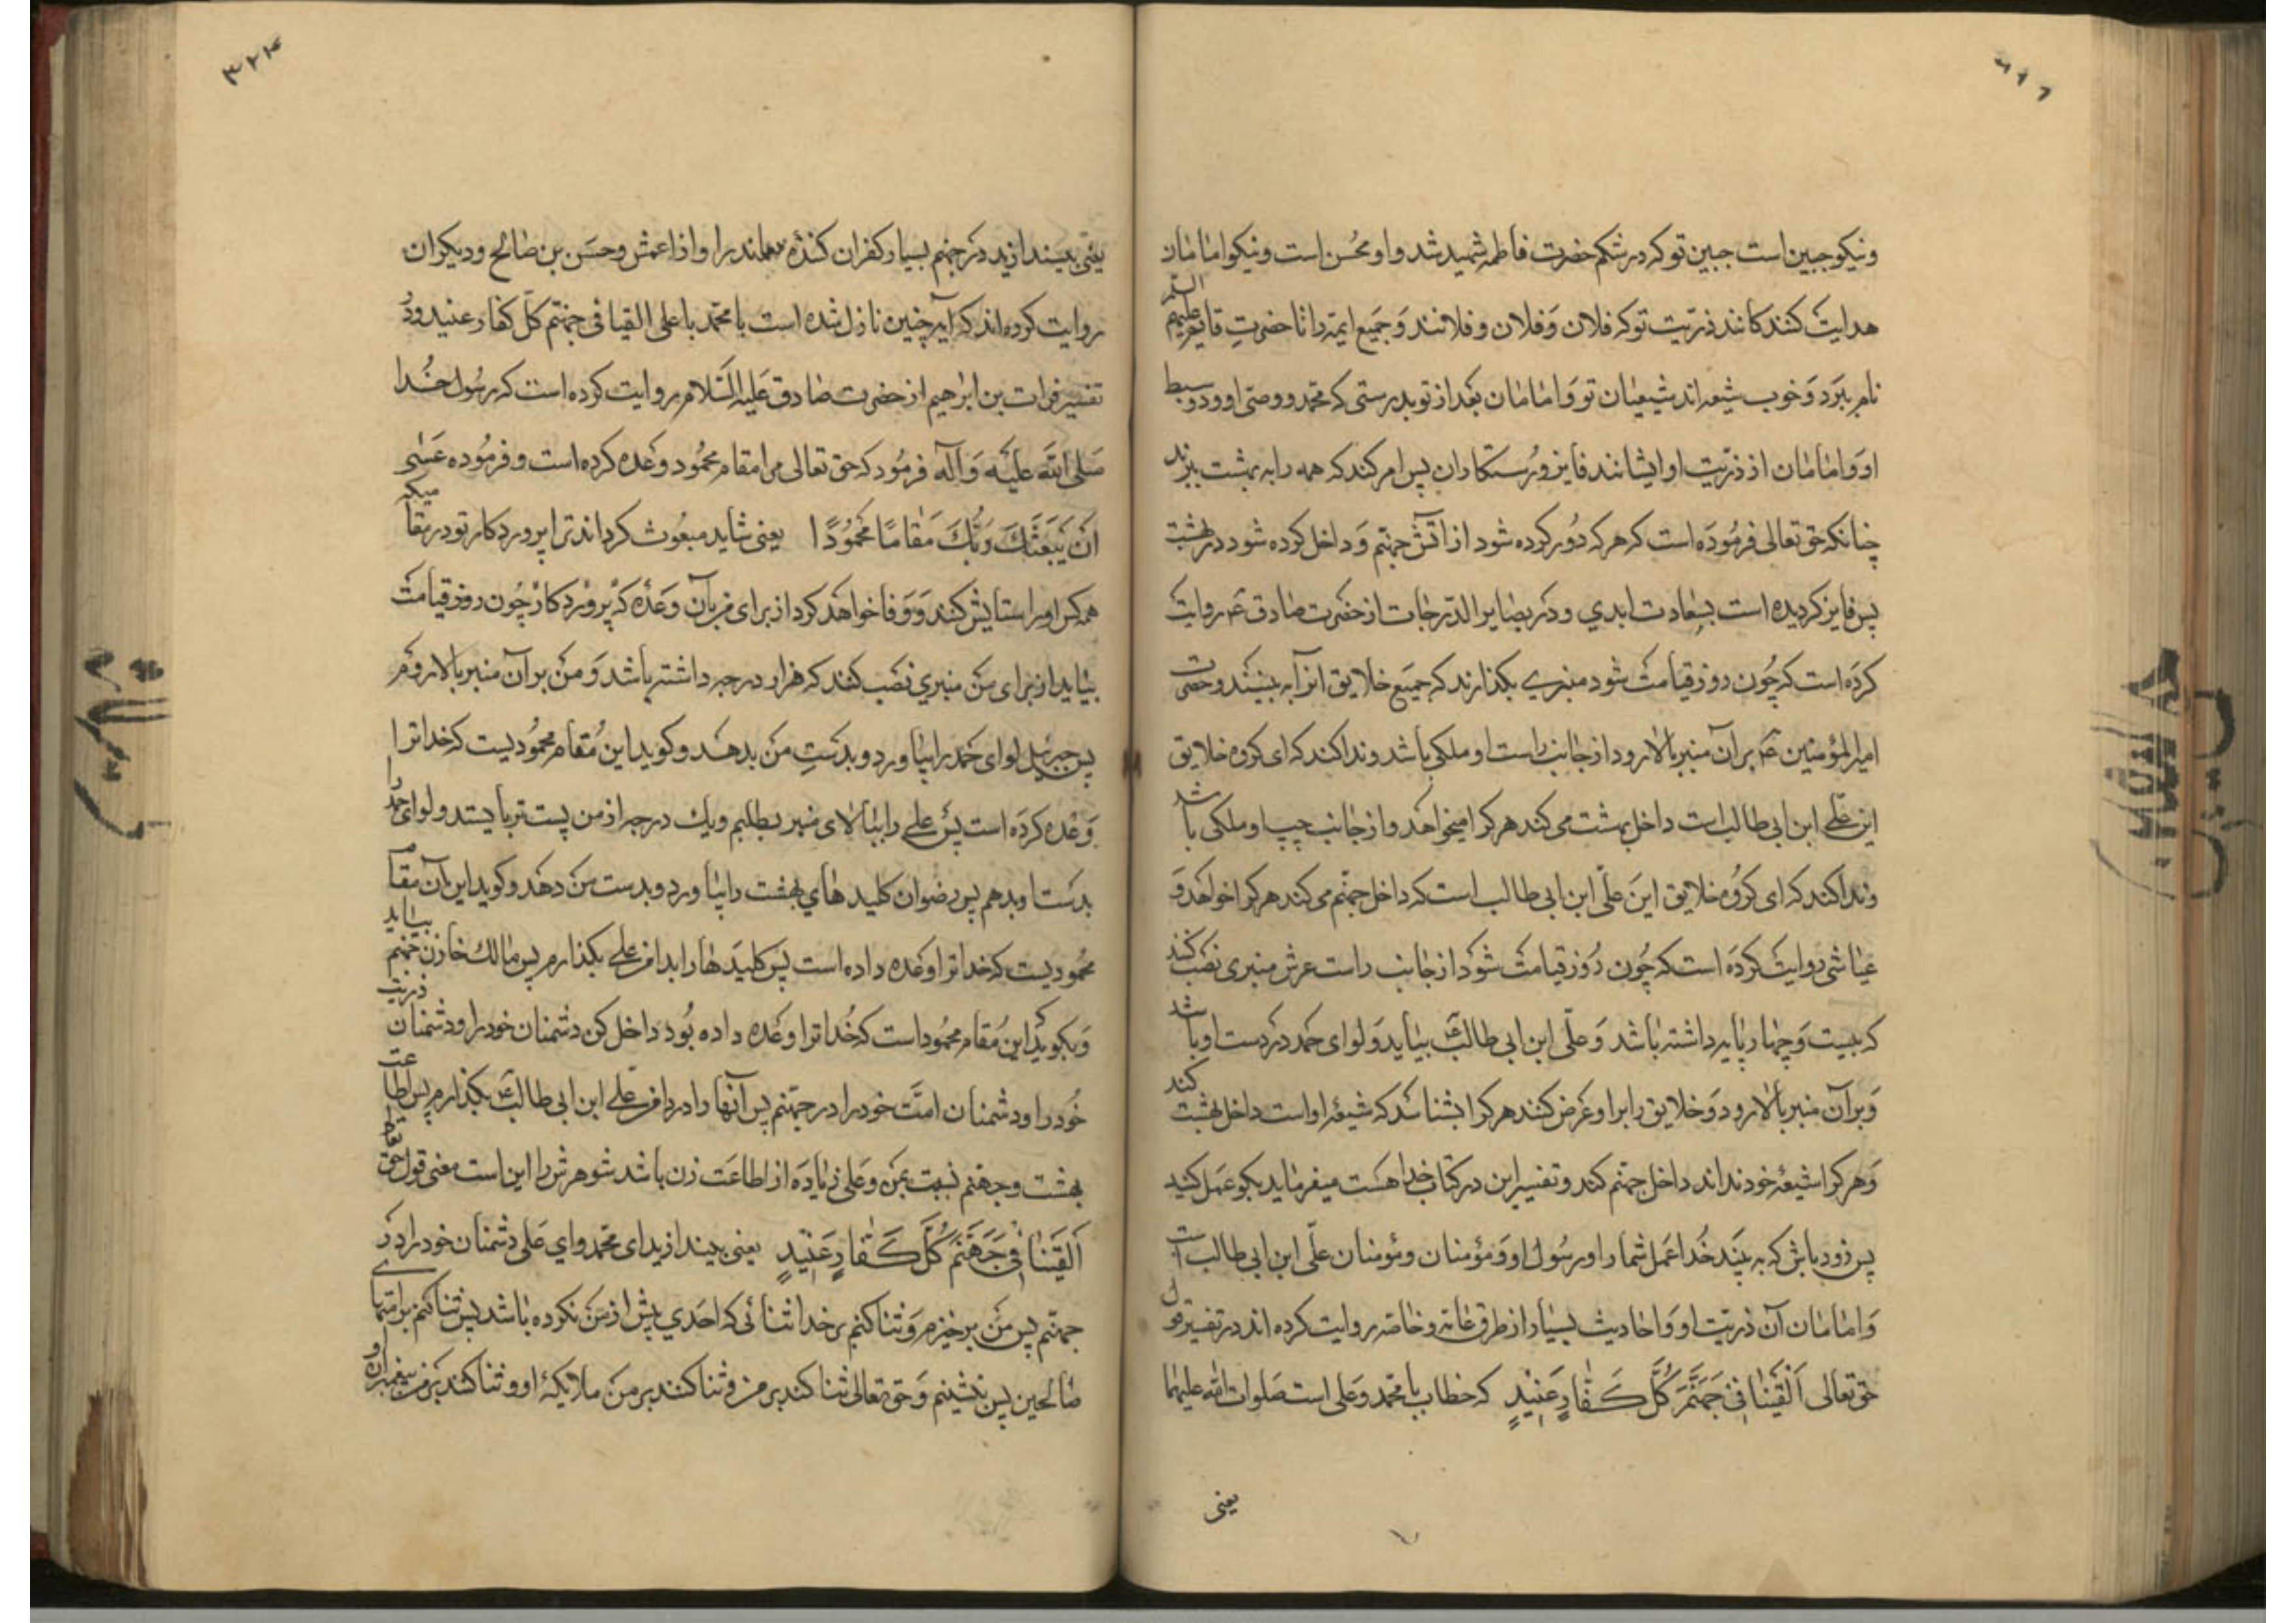 ونیکو جبین است جبین تو که در شکم حضرت فاطمه شهید شد و او محسن است ونیکو امامان
هدایت کنندکانند ذریّت تو که فلان وَفلان و فلانند وَجَمیع ایمّه را تا حضرتِ قایم علیهم السلم
نام ببَرد وَخوب شیعه اند شیعیان تو وَامامان بَعد از تو بدرستی که محمّد و وصّی او و دو سبط
او وَامامان از ذریّت او ایشانند فایز و رُستکاران پس امر کند که همه را به بهشت برند
چنانکه حق تعالی فرمُودَه است که هر که دُور کرده شود از آتش جهنّم وَداخل کرده شود در بهشت
پس فایز کردیده است بسعادت ابدي ودر بصایر الدّرجات از حضرت صادق عَ روایت
کرده است که چُون روز قیامت شود منبری بکذارند که جمیع خلایق آنرا به بینند و حضرت
امیر المؤمنین عَ بر آن منبر بالا رود از جانب راست او ملکی باشد وندا کند که ای کروه خلایق
این علی ابن ابی طالب است داخل بهشت می کند هر کرا میخواهد واز جانب چپ او ملکی باشد
وندا کند که ای کروُه خلایق اینَ علی ابن ابی طالب است که داخل جهنّم می کند هر کرا خواهد وَ
عیاشی روایت کرده است که چُون رُوز قیامت شود از جانب راست عرش منبری نصب کنند
که بیست وَچهار پایه داشته باشد وَعلی ابن ابی طالب عَ بیاید وَلوای حمد در دست او باشد
وَبر آن منبر بالا رود وَخلایق را بر او عَرض کنند هر کرا بشناسد که شیعۀ او است داخل بهشت کند
وَهر کرا شیعۀ خود نداند داخل جهنّم کند و تفسیر این در کتاب خدا هست میفرماید بکو عمل کنید
پس زود باش که به بیند خُدا عمل شما را و رسُول او وَمؤمنان ومؤمنان علی ابن ابی طالب است
وَامامان آن ذریّت او وَاحادیث بسیار از طرق عامّه و خاصّه روایت کرده اند در تفسیر قول
حق تعالی اَلْقِیٰا فی جَهَنَّمَ کُلَّ کَفّارٍ عَنیٖدٍ که خطاب با محمّد وَعلی است صَلوات الله علیهما
یعنی
۳۲۴
یعنی بیندازید در جهنم بسیار کفران کننده معاند را واز اعمش وحسَن بن صالح ودیکران
روایت کرده اند که آیه چنین نازل شده است یا محمّد یا علی القیا فی جهنّم کلّ کفار عنید ودر
تفسیر فرات بن ابراهیم از حضرت صادق عَلیه السَلام روایت کرده است که رسُول خُدا
صَلی الله عَلیَه وَآله فرمُود که حق تعالی مرا مقام محمُود وعده کرده است و فرمُوده عَسٰی
اَنْ یَبْعَثَکَ رَبُّکَ مَقٰامًا مَحْمُوُدًا یعنی شاید مبعُوث کرداند ترا پروردکار تو در مقامیکه
همه کس او را ستایش کنند وَ وَفا خواهد کرد از برای من بآن وَعده که پروَردکار چُون روز قیامت
بیاید از برای من منبري نصب کنند که هزار درجه داشته باشد وَمن بر آن منبر بالا روم
پس جبرئیل لوای حمد را بیاورد وبدستِ من بدهد وکوید این مُقام محمُودیست که خدا ترا
وَعده کرده است پس علی را ببالای منبر بطلبم ویك درجه از من پست تر بایستد ولوای حمد را
بدست او بدهم پس رضوان کلید هاي بهشت را بیاورد وبدست من دهد وکوید این آن مقام
محمُودیست که خدا ترا وعده داده است پَس کلیدَ ها را بدامن علی بکذارم پس مالك خازن جهنم بیاید
وَبکوید که این مُقام محمُود است که خُدا ترا وعده داده بُود داخل کن دشمنان خود را ودشمنان ذریت
خُود را ودشمنان امّت خود را در جهنّم پس آنها را در دامن علی ابن ابی طالب عَ بکذارم پس اطاعت
بهشت وجهنم نسبت بمن وعَلی زیاده از اطاعَت زن باشد شوهرش را این است معنی قول حق تعالی
اَلْقِیٰا فی جَهَنَّمَ کُلَّ کَفّارٍ عَنیٖدٍ یعنی بیندازید ای محمّد واي عَلی دشمنان خود را در
جهنّم پس من برخیزم وَثنا کنم بر خدا ثنائی که احَدي پیش از من نکرده باشد پس ثنا کنم بر امتهای
صالحین پس بنشینم وَحق تعالی ثنا کند بر من وثنا کنند بر من ملایکۀ او وثنا کنند بر من پیغمبران و